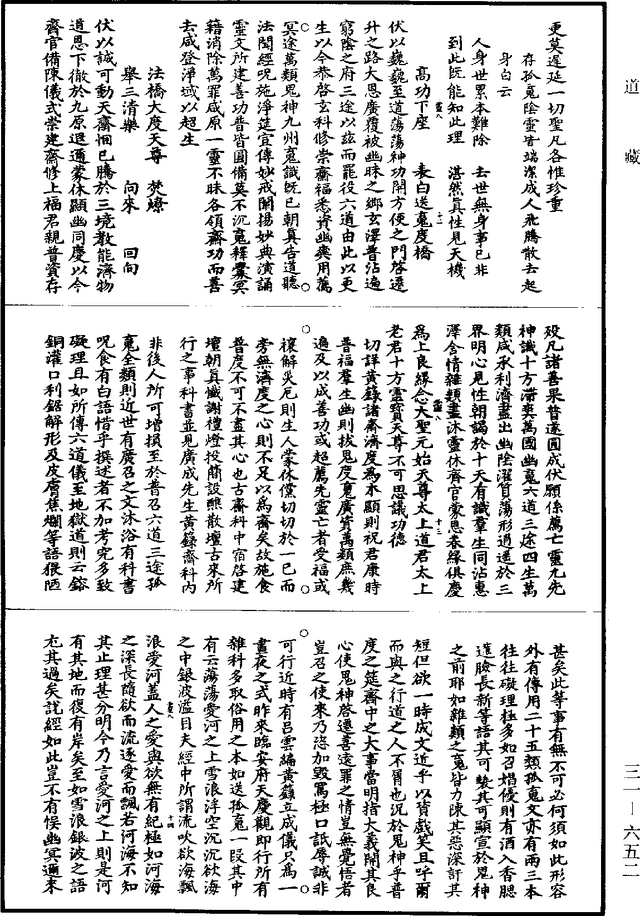 道藏
三一—六五二
更莫遲延一切聖凡各惟珍重
存孤䰟陰靈皆端潔成人飛騰散去起
身白云
人身世累本難除　去世無身事已非
到此既能知此理　湛然真性見天機
高功下座　表白送䰟度橋
伏以巍巍至道蕩蕩神功開方便之門啓遷
升之路大恩廣覆被幽昧之鄉玄澤普沾遍
窮陰之府三途以兹而罷役六道由此以更
生以今恭啓玄科修崇齋福悉資幽爽用薦
冥途萬類鬼神九州䰟識既已朝真告道聽
法聞經呪施淨筵宣傳妙戒開揚妙典演誦
靈文所建善功普皆圓備莫不沉䰟釋釁冥
籍消除萬罪咸原一靈不昧各領齋功而善
去咸登淨域以超生
法橋大度天尊　焚燎
舉三清樂　向來　回向
伏以誠可動天齋悃已騰於三境教能濟物
道恩下徹於九原遐邇蒙休顯幽同慶以今
齋官備陳儀式崇建齋修上福君親普資存
殁凡諸善果普遂圓成伏願係薦亡靈九先
神識十方滯爽萬國幽䰟六道三途四生萬
類咸承利濟盡出幽陰濯質蕩形逍遙於三
界明心見性朝謁於十天有識羣生同沾惠
澤含情雜類盡沐靈休齋官蒙恩眷緣俱慶
爲上良緣念大聖元始天尊太上道君太上
老君十方靈寶天尊不可思議功德
切詳黃錄諸齋濟度爲本願則祝君康時
普福羣生幽則拔鬼度䰟廣資萬類庶幾
遍及以成善功或超薦先靈亡者受福或
禳解灾厄則生人蒙休儻切切於一已而
旁無濟度之心則不足以爲齋矣故施食
普度不可不盡其心也古齋科中宿啓建
壇朝真懺謝禮燈投簡設醮散壇古來所
行之事科書並見廣成先生黃錄齋科內
非後人所可增損至於普召六道三途孤
䰟全類則近世有廣召之文沐浴有科書
呪食有白語惜乎撰述者不加考究多致
礙理且如所傳六道儀至地獄道則云鎔
銅灌口利鋸解形及皮膚焦爛等語猥陋
甚矣此等事有無不可必何須如此形容
外有傳用二十五類孤䰟文亦有兩三本
往往礙理極多如召娼優則有酒入香腮
遮臉長新等語其可笑其可顯宣於鬼神
之前耶如雜類之䰟皆力陳其惡深訐其
短但欲一時成文近乎以貨戲笑且呼爾
而與之行道之人不胥也况於鬼神乎普
度之筵齋中之大事當明指大義開其良
心使鬼神啓遷善遠罪之情豈無覺悟者
豈召之使來乃恣加毀罵極口詆辱誠非
可行近時有呂雲編黃籙立成儀只爲一
晝夜之式昨來臨安府天慶觀即行所有
雜科多取俗用之本如送孤䰟一段其中
有云蕩蕩愛河之上雪浪浮空沉沉欲海
之中銀波濫目夫經中所謂流吹欲海飄
浪愛河蓋人之愛與欲無有紀極如河海
之深長隨欲而流逐愛而飄若河海不知
其止理甚分明今乃言愛河之上則是河
有其地而復有岸矣至如雪浪銀波之語
尤其過矣說經如此豈不有悮幽冥邇來